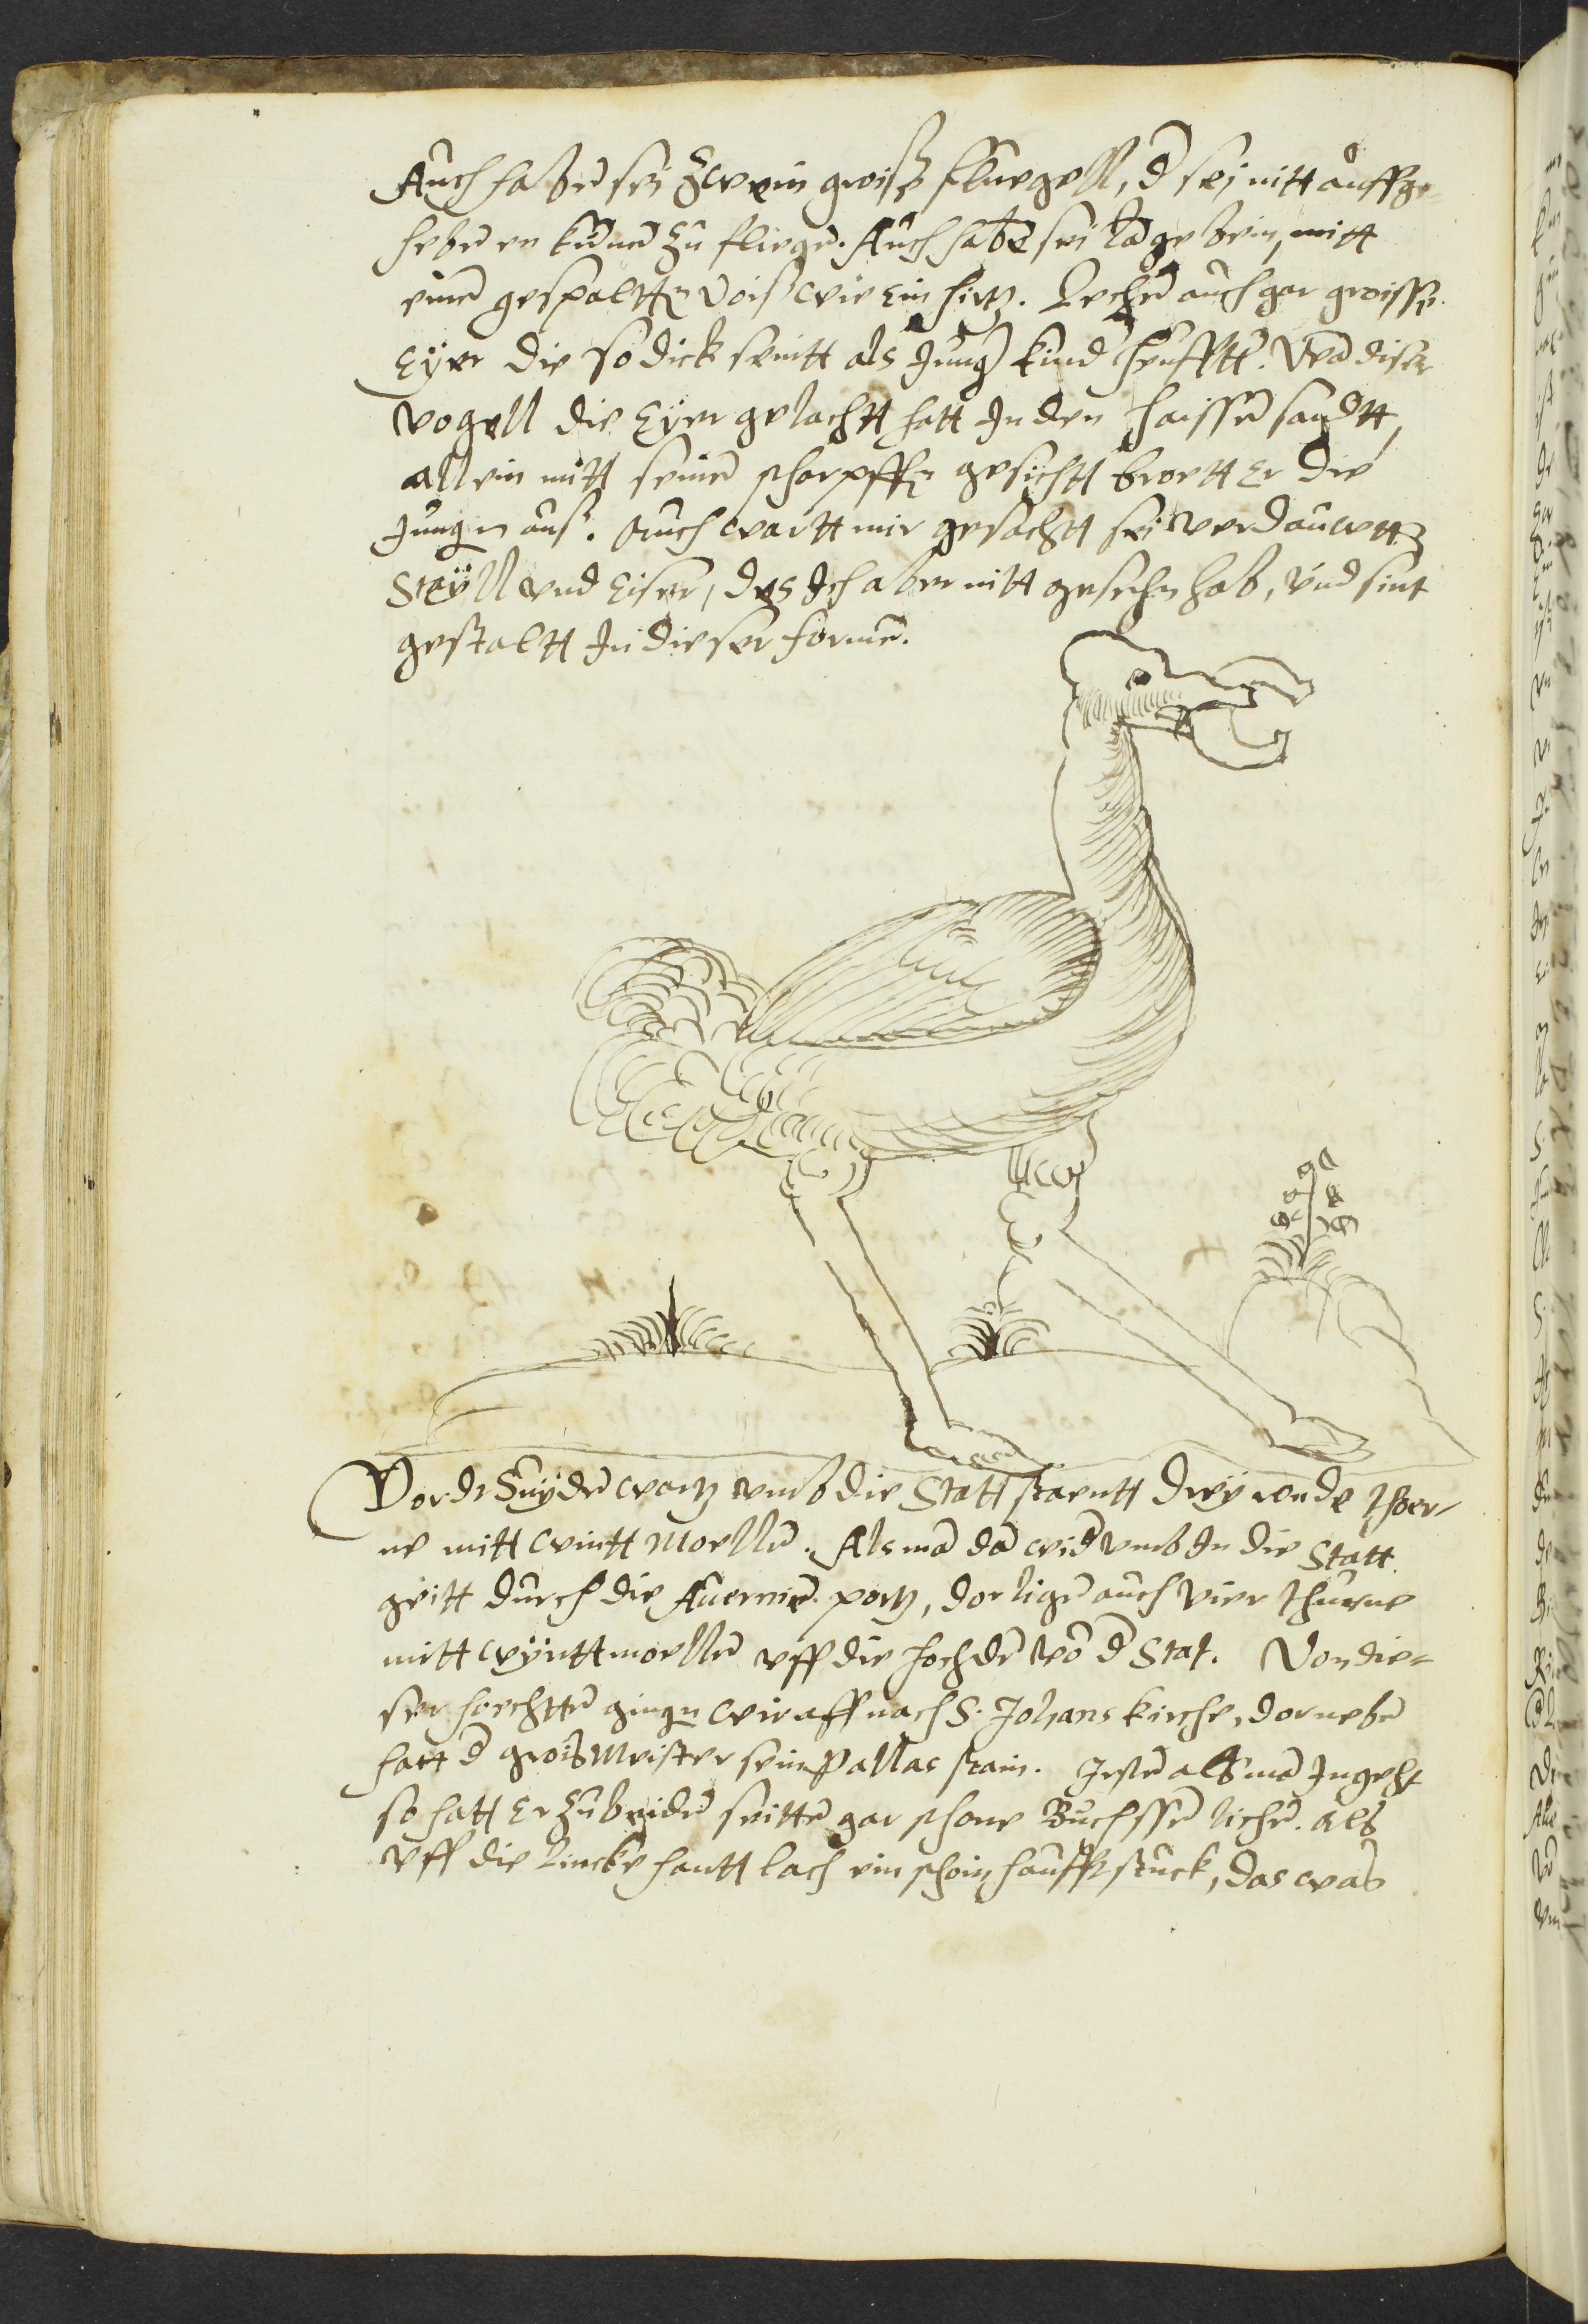 Auch habē sei zwein groiße fluegell, d̄ sei nitt auffge=
hebē en kūnē zu fliegē. Auch habē sei lāge bein, mitt
einē gespaltten voiß wie ein hirtz. Lechē auch gar groisse
Eÿer die so dick seintt als Jung kind heufftt. Wā diser
vogell die Eÿer gelachtt hatt In den haissē sandtt,
allein mitt seinē scharpffen gesichtt broett Er die
Jungen auß. Auch wartt mir gesachtt sei verdauwtten
Staÿll vnd Eiser, des Ich aber nitt gesehen hab, vnd sint
gestaltt In dieser formē.
Vor der Suÿdē wartz vmb die Statt staentt dreÿ runde thoer=
ne mitt wintt Moellē. Als mā dā wid̄ vmb In die Statt
geitt durch die portz, dor ligē auch vier thurne
mitt wÿntt moellē vff die hochdē vō d̄ Stat. Von die=
ser hoechttē gingen wir aff nach S. Johans kirche, dornebē
hatt d̄ grois Meister sein Pallas stain. Irstē als mā Ingeht
so hatt Er zu beidē seittē gar schone Buchssē lichē. als
vff die lincke hantt lach ein schoin hauffstuck, das was